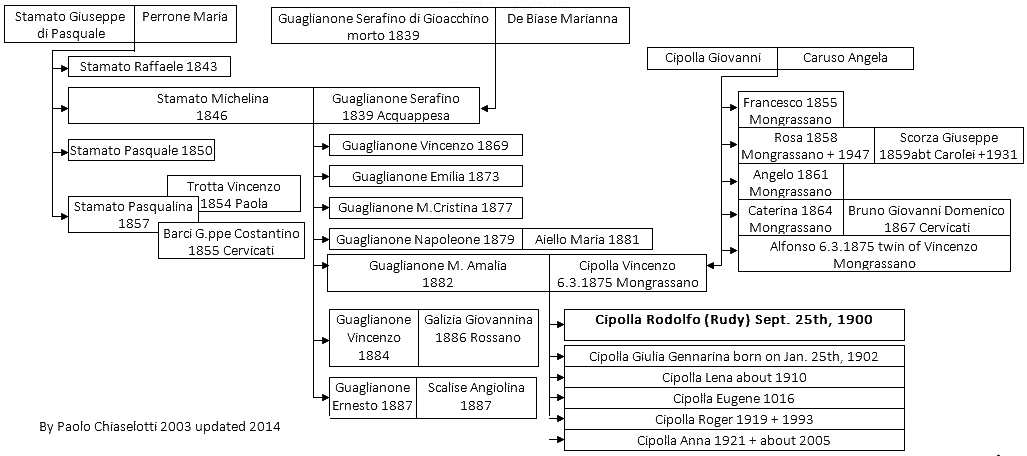 Stamato Giuseppe
di Pasquale
Perrone Maria
Guaglianone Serafino di Gioacchino
morto 1839
De Biase Marianna
Cipolla Giovanni
Caruso Angela
Stamato Raffaele 1843
Stamato Michelina
1846
Guaglianone Serafino
1839 Acquappesa
Stamato Pasquale 1850
Trotta Vincenzo
1854 Paola
Stamato Pasqualina
1857
Barci G.ppe Costantino
1855 Cervicati
Guaglianone Vincenzo 1869
Guaglianone Emilia 1873
Guaglianone M.Cristina 1877
Guaglianone Napoleone 1879
Aiello Maria 1881
Guaglianone M. Amalia
1882
Cipolla Vincenzo
6.3.1875 Mongrassano
Guaglianone
Vincenzo
1884
Galizia Giovannina
1886 Rossano
Guaglianone
Ernesto 1887
Scalise Angiolina
1887
Francesco 1855
Mongrassano
Rosa 1858
Mongrassano + 1947
Scorza Giuseppe
1859abt Carolei +1931
Angelo 1861
Mongrassano
Caterina 1864
Mongrassano
Bruno Giovanni Domenico
1867 Cervicati
Alfonso 6.3.1875 twin of Vincenzo
Mongrassano
Cipolla Rodolfo (Rudy) Sept. 25th, 1900
Cipolla Giulia Gennarina born on Jan. 25th, 1902
Cipolla Lena about 1910
Cipolla Eugene 1016
Cipolla Roger 1919 + 1993
Cipolla Anna 1921 + about 2005
By Paolo Chiaselotti 2003 updated 2014